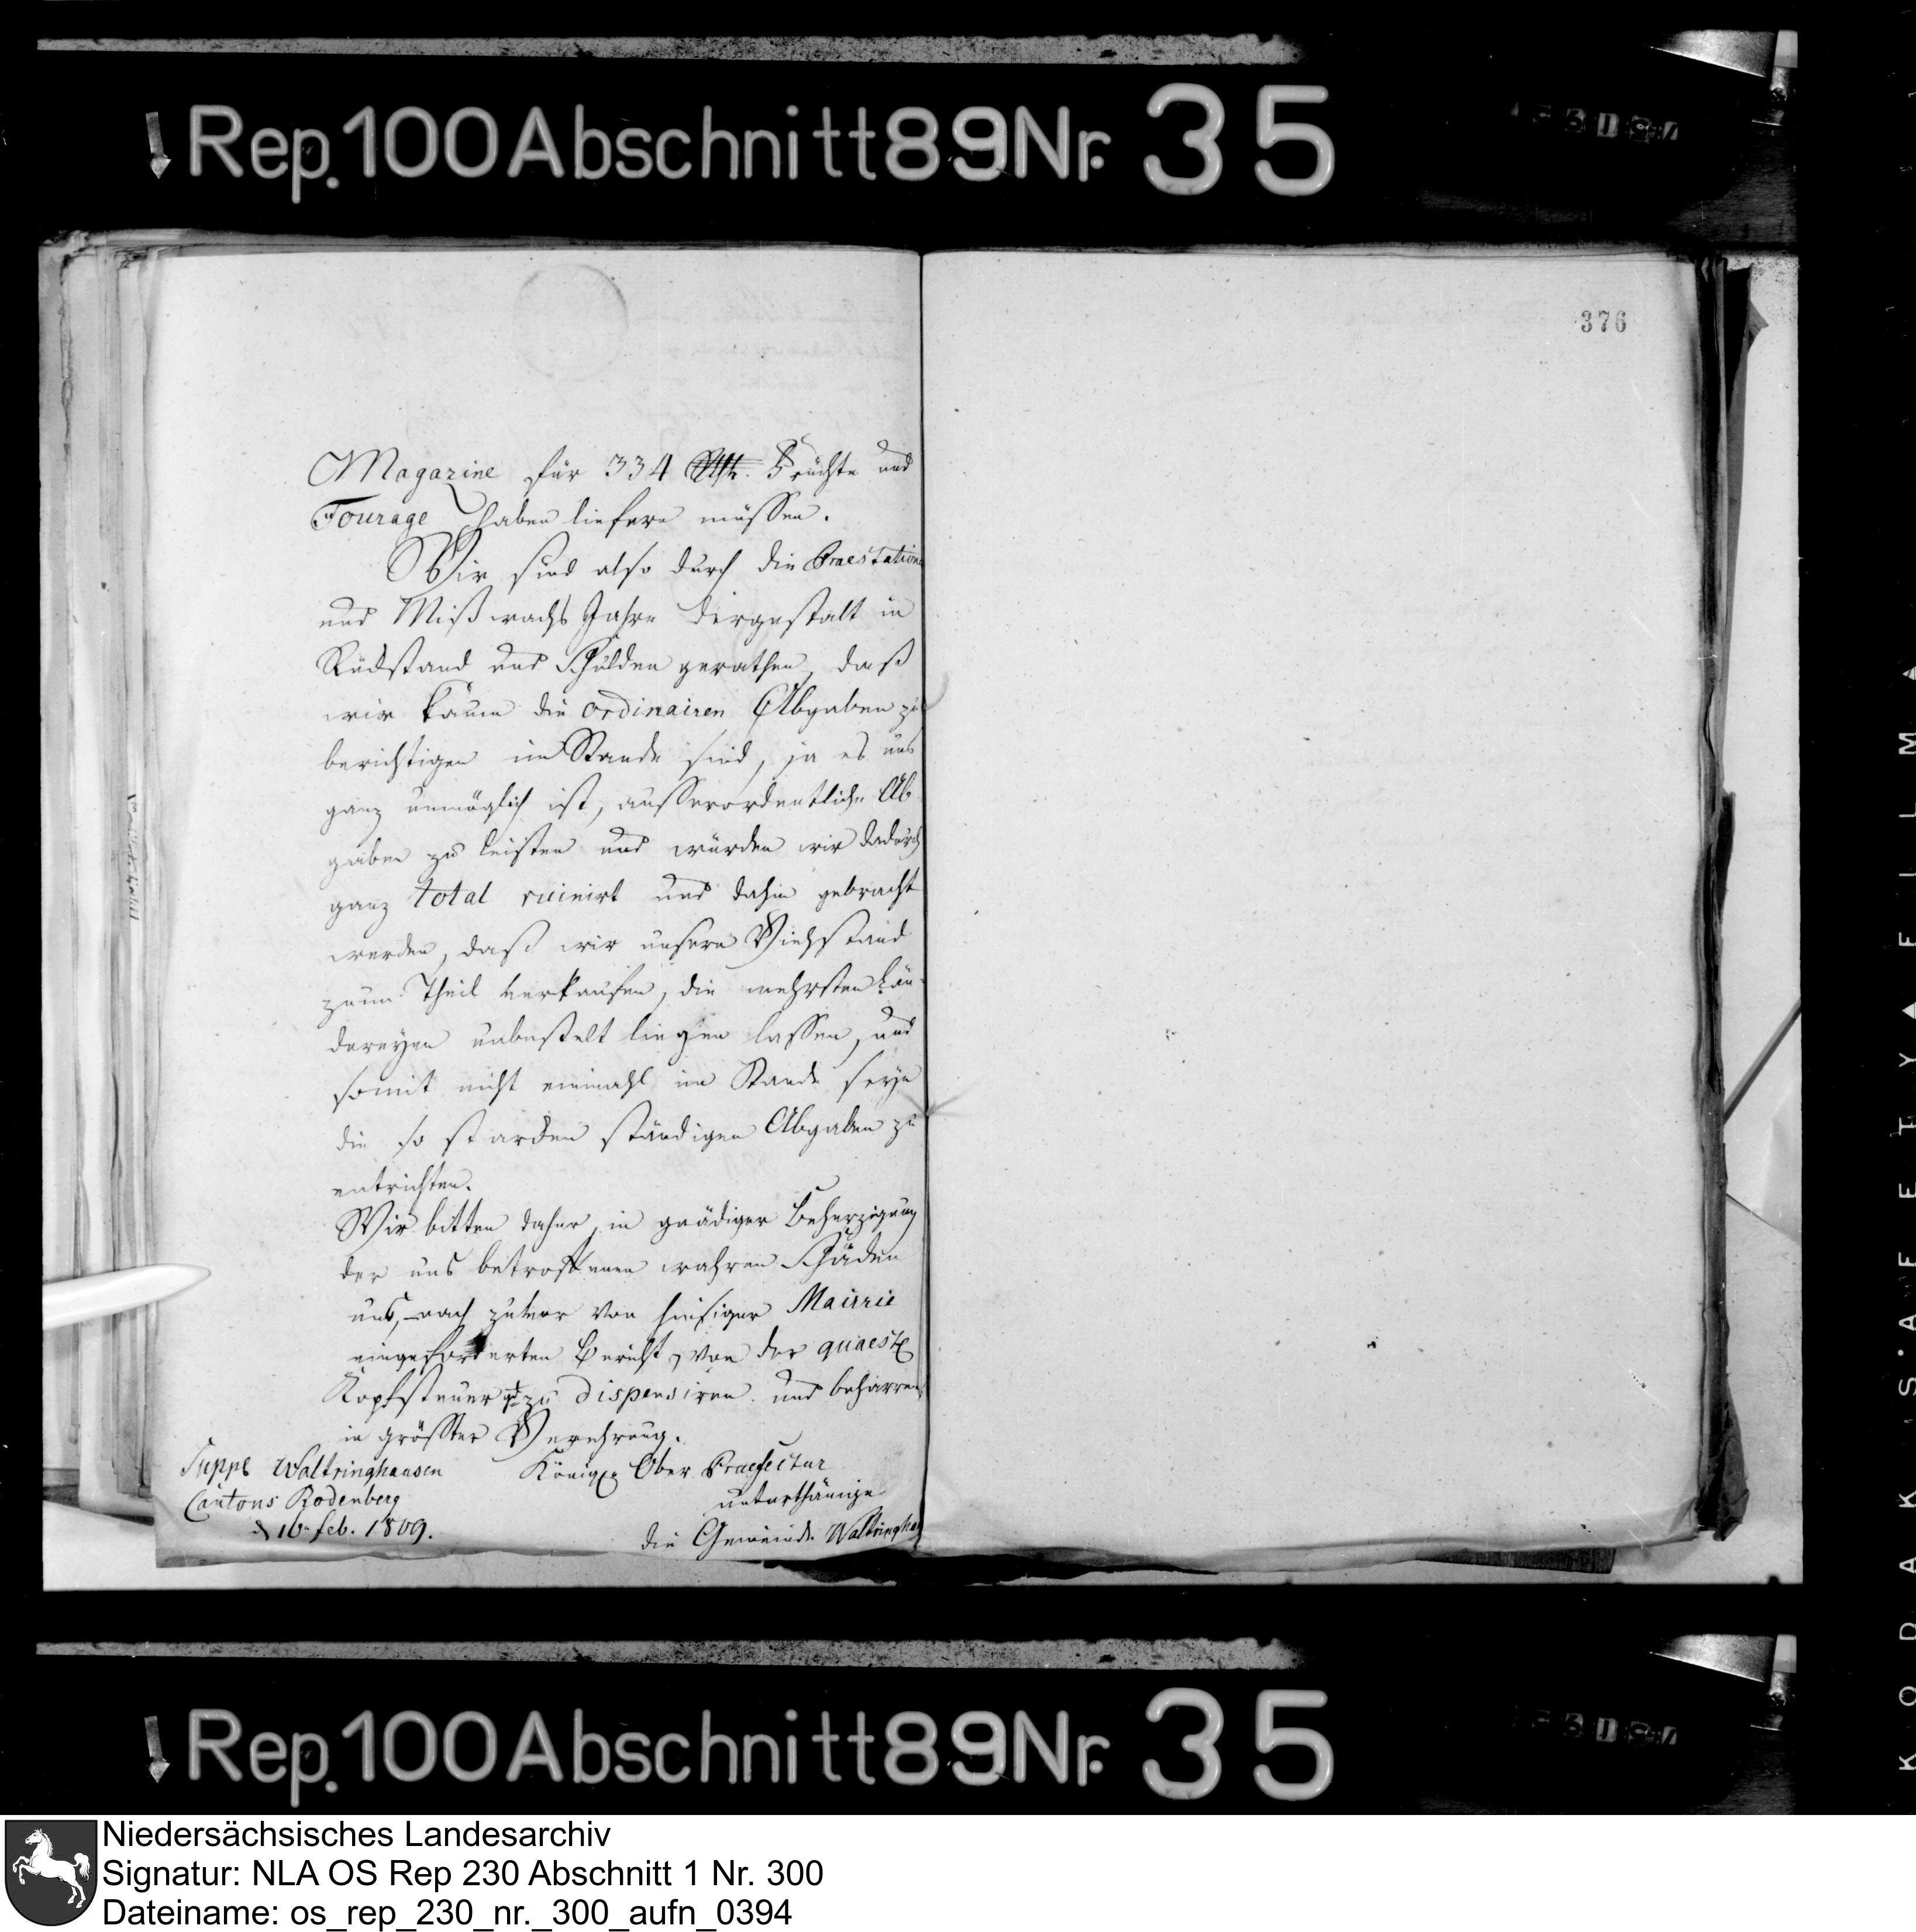 Rep. 100 Abschnitt 89 Nr. 35
376
Magazine für 334 Rth. Früchte und
Fourage haben liefern müssen.
Wir sind also durch die Praestations
und Mißwachs Jahre dergestalt in
Rückstand und Schulden gerathen, daß
wir kaum die ordinairen Abgaben zu
berichtigen im Stande sind, ja es uns
ganz unmöglich ist, ausserordentliche Ab
gaben zu leisten und würden wir dadurch
ganz total ruinirt und dahin gebracht
werden, daß wir unsern Viehstand
zum Theil verkaufen, die mehrsten Län-
dereyen unbestelt liegen lassen, und
somit nicht einmahl im Stande seyn
die so starcken ständigen Abgaben zu
entrichten.
Wir bitten daher, in gnädiger Beherzigung
der uns betroffenen wahren Schäden
uns, nach zuvor von hiesiger Mairrie
eingeforderten Bericht, von der quaest.
Kopfsteuer zu dispensiren und beharren
in grösster Verehrung.
Suppl Waltringhausen
Cantons Rodenberg
d 16 feb. 1809.
Königl. Ober Praefectur
unterthänige
die Gemeinde Waltringhau
Rep. 100 Abschnitt 89 Nr. 35
KODAK SAFETY FILM
Niedersächsisches Landesarchiv
Signatur: NLA OS Rep 230 Abschnitt 1 Nr. 300
Dateiname: os_rep_230_nr._300_aufn_0394